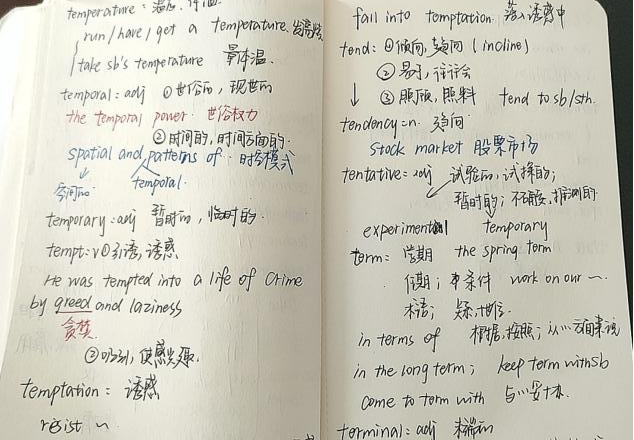 temperature: 温度
run/have/get a temperature. 发高烧
take sb's temperature 量体温
temporal: adj ①世俗的, 现世的
the temporal power 世俗权力
②时间的, 时间方面的
spatial and patterns of 时空模式
空间的 temporal
temporary: adj 暂时的, 临时的
tempt: v ①引诱, 诱惑
He was tempted into a life of crime
by greed and laziness
贪婪
②吸引, 使感兴趣
temptation: 诱惑
resist ~
fall into temptation 落入诱惑中
tend: ①倾向, 趋向 (incline)
②易于, 往往会
③照顾, 照料 tend to sb/sth.
tendency: n. 趋向
stock market 股票市场
tentative: adj 试验的, 试探的;
暂时的; 不确定, 推测的
experimental temporary
term: 学期 the spring term
任期; 条件 work on our ~.
术语;
in terms of 根据, 按照; 从…方面来说
in the long term; keep term with sb
come to term with 与…妥协
terminal: adj 末端的